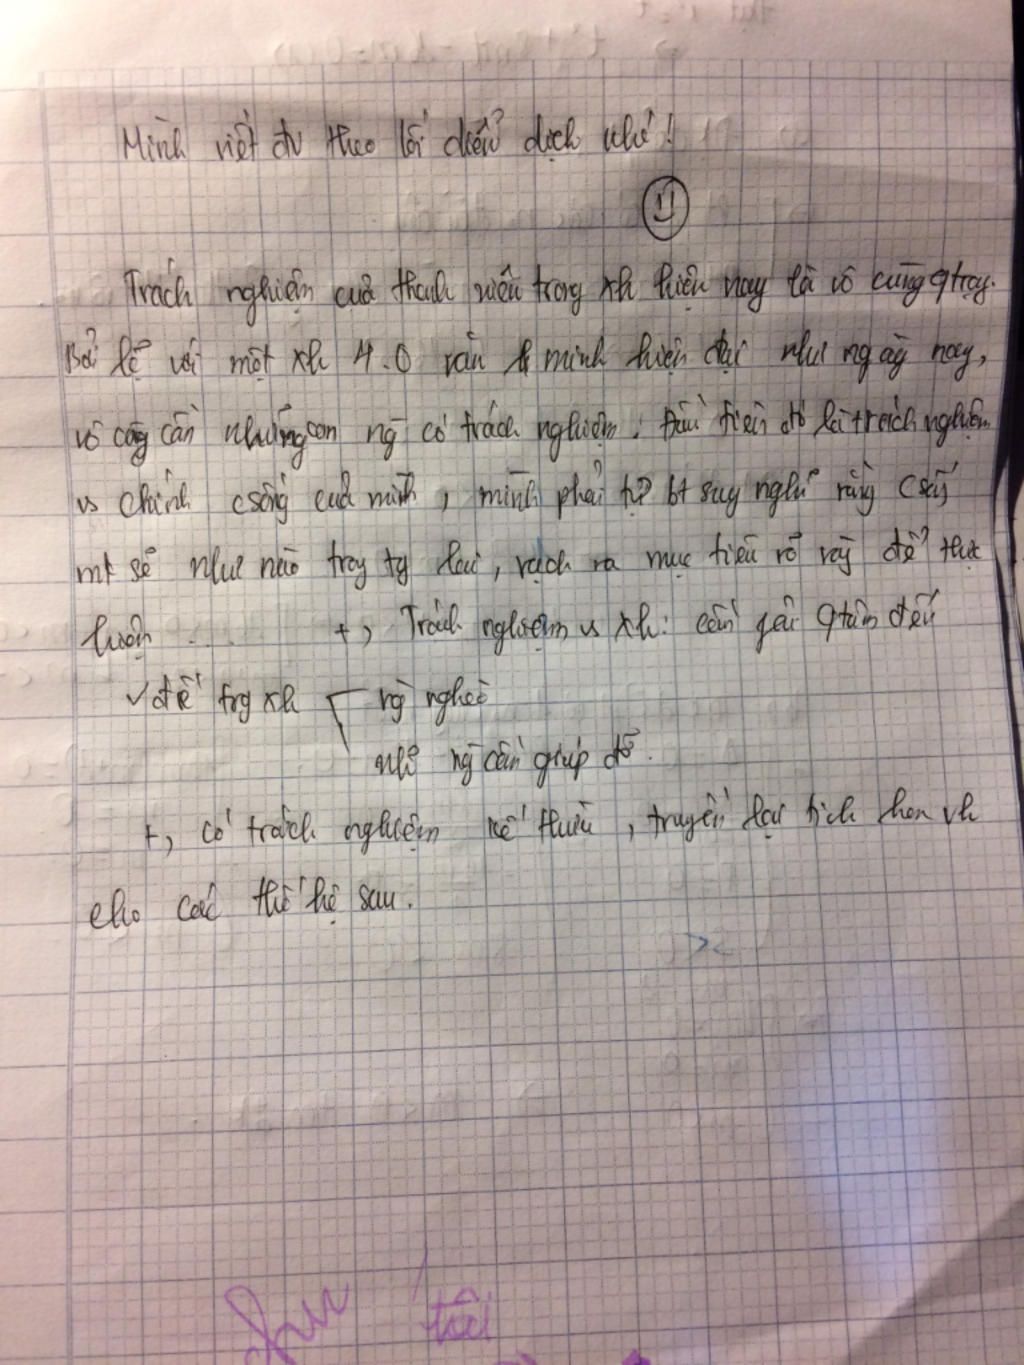 Minh viết đv theo lối diễn dịch nhé!
Trách nghiệm của thanh niên trong xh hiện nay là vô cùng qtrọg.
Bởi lẽ với một xh 4.0 văn minh hiện đại như ngày nay,
vô cùg cần những con ng có trách nghiệm. Đầu tiên đó là trách nghiệm
vs chính csống của mình, mình phải tự bt suy nghĩ rằng csốg
mk sẽ như nào trog tg lai, vạch ra mục tiêu rõ ràg để thực
hiện ... +, Trách nghiệm vs xh: cần phải qtâm đến
vđề trg xh ng nghèo
nhữ ng cần giúp đỡ.
+, có trách nghiệm kế thừa, truyền lại tinh hoa vh
cho các thế hệ sau.
tôi